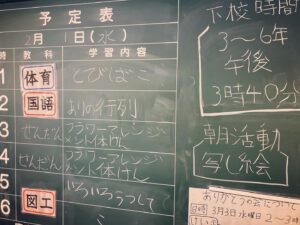 予定表
2月1日(水)
時 教科 学習内容
1 体育 とびばこ
2 国語 ありの行列
3 せんだん フラワーアレンジメント体けん
4 せんだん フラワーアレンジメント体けん
5 いろいろうつして
6 図工
下校時間
3～6年
午後
3時40分
朝活動
写し絵
ありがとうの会について
日時 3月3日水曜日 2～3時